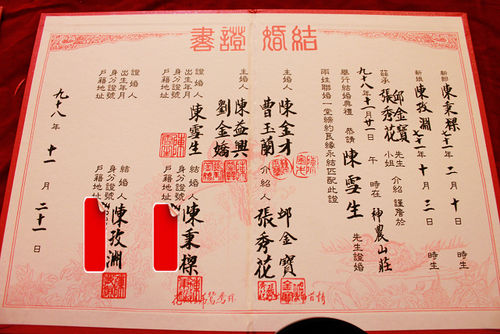 結婚證書
新郎 陳秉樑 七十一年 二 月 十 日 時生
新娘 陳孜淵 七十一年 十 月 三 日 時生
茲承 邱金寶 張秀花 先生 小姐 介紹 謹詹於
九十八年十一月廿一日 時在 神農山莊
舉行結婚典禮 恭請 陳雪生 先生證婚
兩姓聯婚一堂締約良緣永結匹配此證
主婚人 陳金才
曹玉蘭
介紹人 邱金寶
張秀花
主婚人 陳益興
劉金嬌
證婚人 陳雪生
出生年月
身分證號
戶籍地址
結婚人 陳秉樑
出生年月
身分證號
戶籍地址
結婚人 陳孜淵
出生年月
身分證號
戶籍地址
九十八年 十一 月 二十一 日